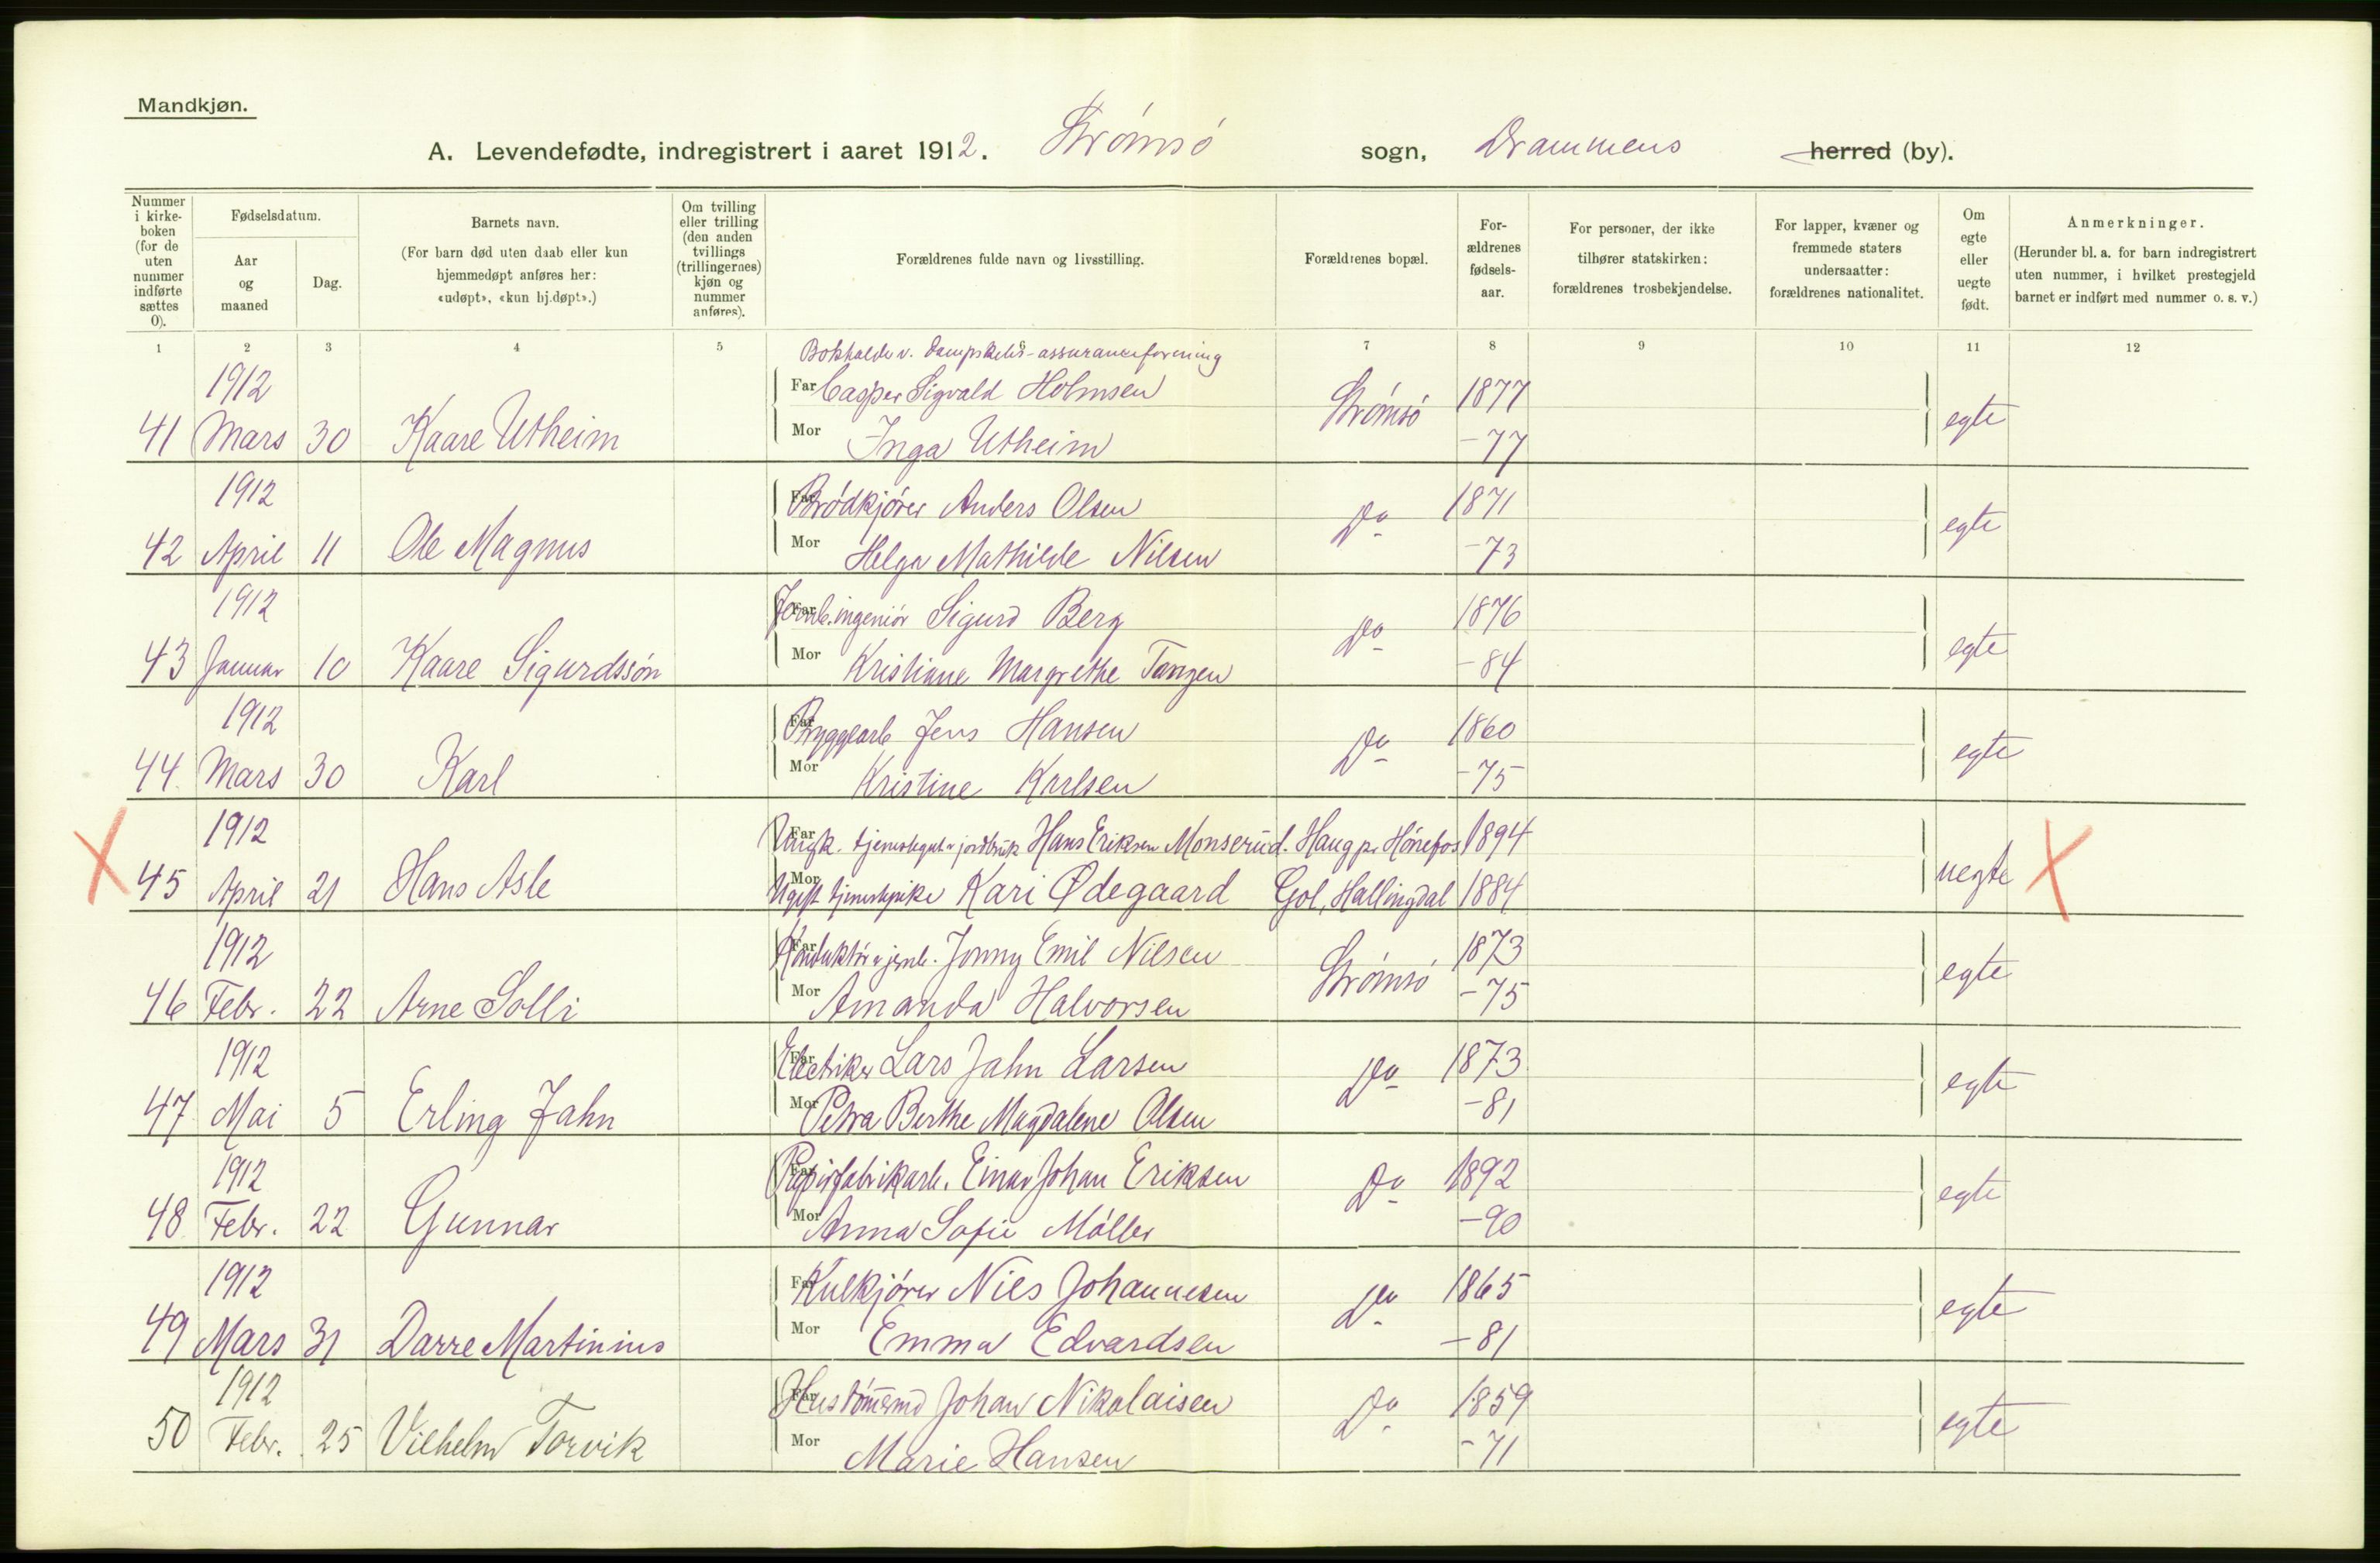 Mandkjøn.
A. Levendefødte, indregistrert i aaret 1912. Strømsø sogn, Drammens herred (by).
Nummer i kirkeboken (for de uten nummer indførte sættes 0).
Fødselsdatum.
Aar og maaned
Dag.
Barnets navn.
(For barn død uten daab eller kun hjemmedøpt anføres her: «udøpt», «kun hj.døpt».)
Om tvilling eller trilling (den anden tvillings (trillingernes) kjøn og nummer anføres).
Forældrenes fulde navn og livsstilling.
Forældrenes bopæl.
Forældrenes fødselsaar.
For personer, der ikke tilhører statskirken: forældrenes trosbekjendelse.
For lapper, kvæner og fremmede staters undersaatter: forældrenes nationalitet.
Om egte eller uegte født.
Anmerkninger.
(Herunder bl. a. for barn indregistrert uten nummer, i hvilket prestegjeld barnet er indført med nummer o. s. v.)
1 2 3 4 5 7 8 9 10 11 12
Bokholder v. Dampskibs-assuranceforening
1912 Far Casper Sigvald Holmsen Strømsø 1877
41 Mars 30 Kaare Utheim Mor Inga Utheim -77 egte
1912 Far Brødkjører Anders Olsen Do 1871
42 April 11 Ole Magnus Mor Helga Mathilde Nilsen -73 egte
1912 Far Jernb.ingeniør Sigurd Berg Do 1876
43 Januar 10 Kaare Sigurdssøn Mor Kristiane Margrethe Tangen -84 egte
1912 Far Bryggearb Jens Hansen Do 1860
44 Mars 30 Karl Mor Kristine Karlsen -75 egte
1912 Far Ungk. tjenestegut v jordbruk Hans Eriksen Monserud. Haug pr Hønefos 1894
X 45 April 21 Hans Asle Mor Ugift tjenestepike Kari Ødegaard Gol, Hallingdal 1884 uegte X
1912 Far Konduktør v jernb. Jonny Emil Nilsen Strømsø 1873
46 Febr. 22 Arne Solli Mor Amanda Halvorsen -75 egte
1912 Far Electriker Lars Jahn Larsen Do 1873
47 Mai 5 Erling Jahn Mor Petra Berthe Magdalene Olsen -81 egte
1912 Far Papirfabrikarb. Einar Johan Eriksen Do 1892
48 Febr. 22 Gunnar Mor Anna Sofie Møller -90 egte
1912 Far Kulkjører Nils Johannesen Do 1865
49 Mars 31 Darre Martinius Mor Emma Edvardsen -81 egte
1912 Far Johan Nikolaisen Do 1859
50 Febr. 25 Vilhelm Torvik Mor Marie Hansen -71 egte